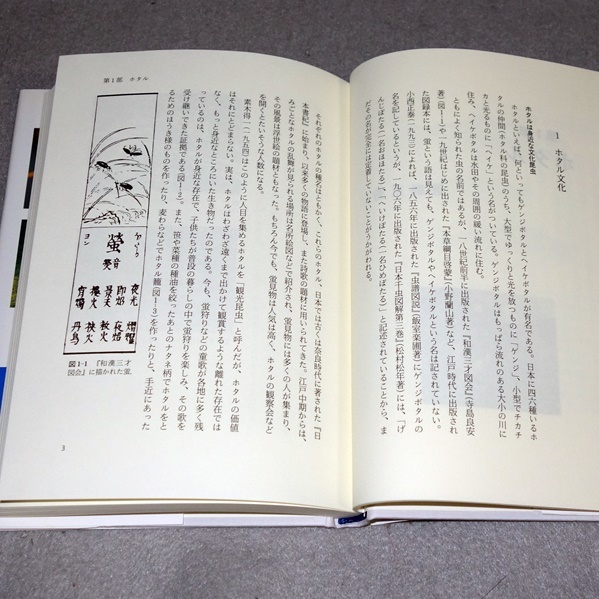 1　ホタル文化
ホタルは身近な文化昆虫
ホタルといえば、何といってもゲンジボタルとヘイケボタルが有名である。日本に四六種いるホ
タルの仲間(ホタル科の昆虫)のうち、大型でゆっくりと光を放つものに「ゲンジ」、小型でチカチ
カと光るものに「ヘイケ」という名がついている。ゲンジボタルはもっぱら流れのある大小の川に
住み、ヘイケボタルは水田やその周囲の緩い流れに住む。
ともによく知られた虫の名前ではあるが、一八世紀前半に出版された『和漢三才図会』(寺島良安
著)(図1-1)や一九世紀はじめに出された『本草綱目啓蒙』(小野蘭山著)など、江戸時代に出版され
た図録本には、蛍という語は見えても、ゲンジボタルやヘイケボタルという名は記されていない。
小西正泰(一九九三)によれば、一八五六年に出版された『虫譜図説』(飯室楽圃著)にゲンジボタルの
名を記しているというが、一九〇六年に出版された『日本千虫図解第三巻』(松村松年著)には、「げ
んじぼたる(一名おほほたる)」「へいけぼたる(一名ひめぼたる)」と記述されていることから、ま
だその名が完全には定着していないことがうかがわれる。
第1部　ホタル
それぞれのホタルの種名はともかく、これらのホタルは、日本では古くは奈良時代に著された『日
本書紀』に始まり、以来多くの物語に登場し、また詩歌の題材に用いられてきた。江戸中期からは、
みごとなホタルの乱舞が見られる場所は名所絵図などで紹介され、蛍見物には多くの人が集まり、
その風景は浮世絵の題材ともなった。もちろん今でも、蛍見物は人気は高く、ホタルの観察会など
を開くとたいそうな人数になる。
素木得一(一九五四)はこのように人目を集めるホタルを「観光昆虫」と呼んだが、ホタルの価値
はそれにとどまらない。実は、ホタルはわざわざ遠くまで出かけて観賞するような離れた存在では
なく、もっと身近なところにいた生き物だったのである。今も、蛍狩りなどの童歌が各地に多く残
っているのは、ホタルが身近な存在で、子供たちが普段の暮らしの中で蛍狩りを楽しみ、その歌を
受け継いできた証拠である(図1-2)。また、笹や菜種の種油を絞ったあとのナタネ柄でホタルをと
るためのほうき様のものを作ったり、麦わらなどでホタル籠(図1-3)を作ったりと、手近にあった
螢
音
ヨン
夜光
熠燿
即炤
夜炤
景天
救火
據火
挾火
宵燭
丹鳥
図1-1　『和漢三才
図会』に描かれた蛍。
3